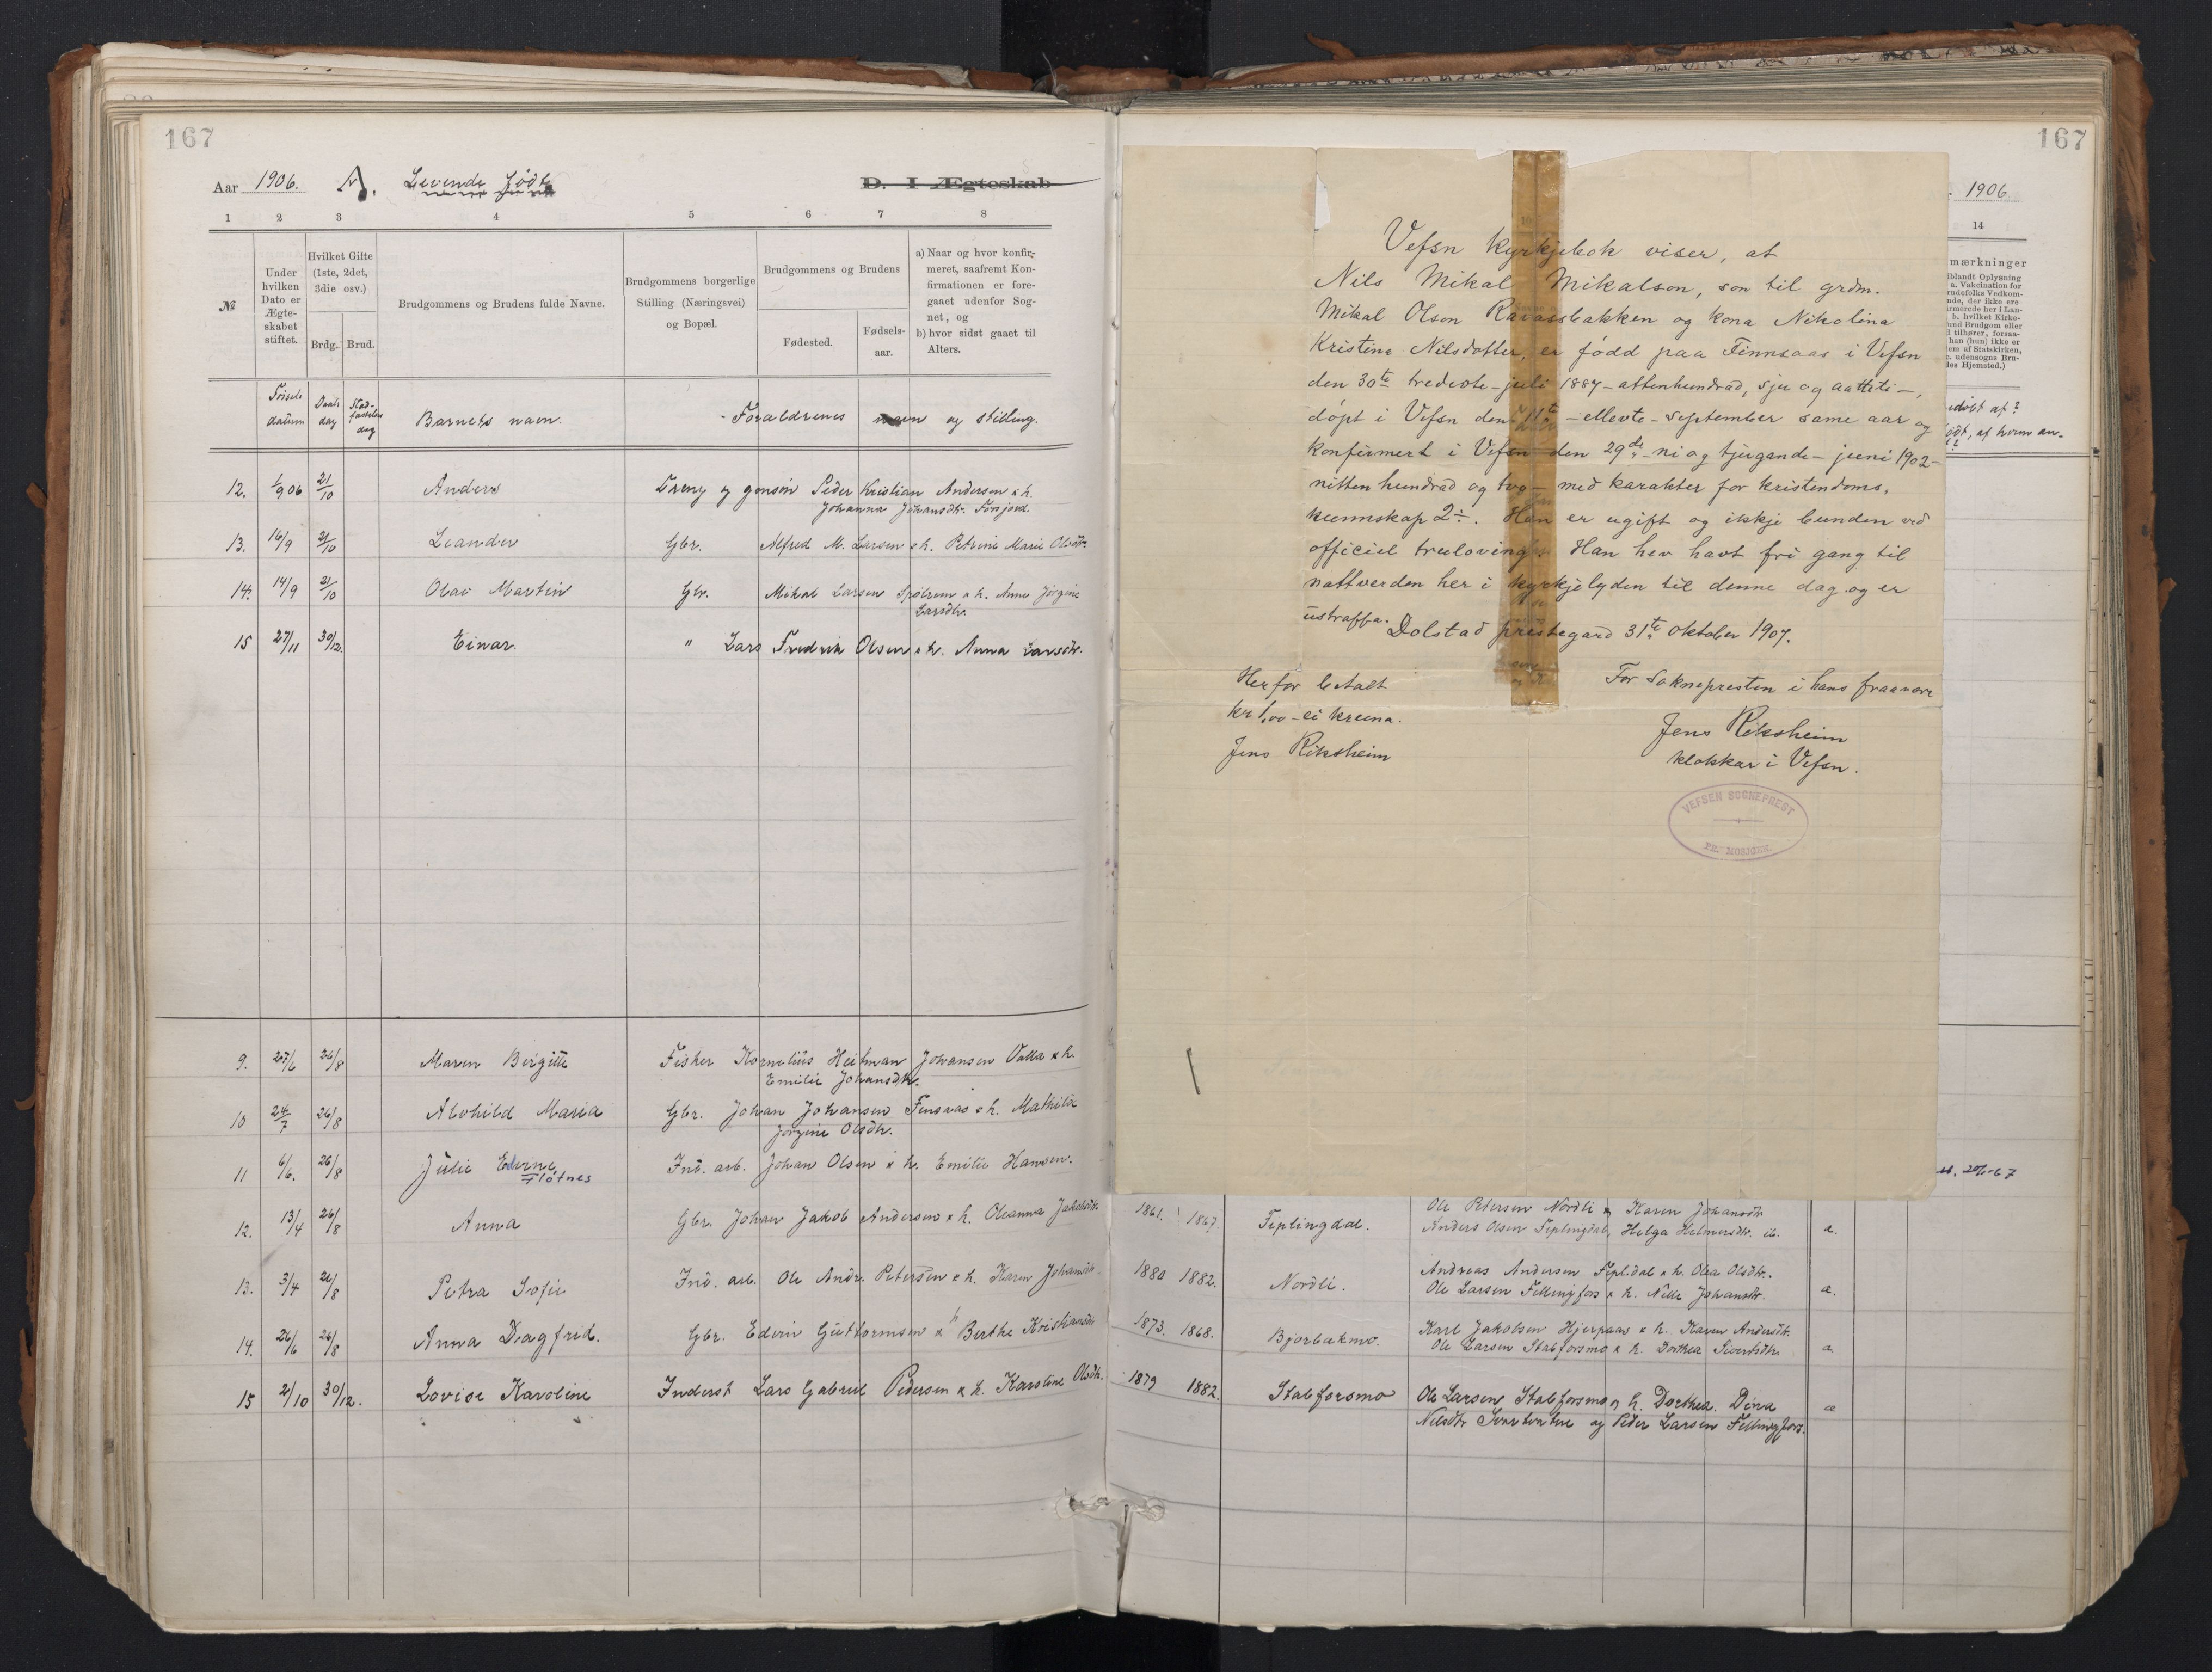 167
Aar 1906. A. Levende Fødte
D. I Ægteskab
1 2 3 4 5 6 7 8
№
Under hvilken Dato er Ægteskabet stiftet.
Hvilket Gifte (1ste, 2det, 3die osv.)
Brdg. Brud.
Brudgommens og Brudens fulde Navne.
Brudgommens borgerlige Stilling (Næringsvei) og Bopæl.
Brudgommens og Brudens
Fødested.
Fødselsaar.
a) Naar og hvor konfirmeret, saafremt Konfirmationen er foregaaet udenfor Sognet, og
b) hvor sidst gaaet til Alters.
Fødsels datum
Daabs dag
Barnets navn.
Forældrenes navn og stilling.
12. 1/9 06 21/10 Anders Peder Kristian Andersen & h.
Johanna Johansdtr. Forsjord.
13. 16/9 21/10 Leander Gbr. Alfred M. Larsen & h. Petrine Marie Olsdtr.
14. 14/9 21/10 Olav Martin Gbr. Mikal Larsen & h. Anne Jørgine
Larsdtr.
15 27/11 30/12. Einar. " Lars Fredrik Olsen & h. Anna Larsdtr.
9. 27/6 26/8 Maren Birgitte Fisker Kornelius Heitman Johansen Valla & h.
Emilie Johansdtr.
10 24/7 26/8 Alvhild Maria Gbr. Johan Johansen & h. Mathilde
Jørgine Olsdtr.
11 6/6. 26/8 Julie Ind. arb. Johan Olsen & h. Emilie Hansen.
Flotnes
12. 13/4 26/8 Anna Gbr. Johan Jakob Andersen & h. Oleanna Jakobsdtr.
13. 3/4 26/8 Petra Sofie Ind. arb. Ole Andr. Petersen & h. Karen Johansdtr.
14. 26/6 26/8 Anna Dagfrid. Gbr. Edvin Guttormsen & h Berthe Kristiansdtr
15 2/10 30/12. Lovise Karoline Inderst Lars Gabriel Pedersen & h. Karoline Olsdtr.
167
1906
14
Vefsn kyrkjebok viser, at
Nils Mikal Mikalson, son til grdm.
Mikal Olson Ravassbakken og kona Nikolina
Kristine Nilsdotter, er fødd paa Finnsaas i Vefsn
den 30te tredevte - juli 1887 - attenhundrad, sju og aatteti -,
døpt i Vefsn den 11te - ellevte - september same aar og
konfirmert i Vefsn den 29de - ni og tjugande - juni 1902 -
nitten hundrad og tvo - med karakter for kristendoms-
kunnskap 2÷. Han er ugift og ikkje bunden ved
officiel truloving. Han hev havt fri gang til
nattverden her i kyrkjelyden til denne dag og er
ustraffa.
Dolstad prestegard 31te oktober 1907.
Herfor betalt
kr 1,00 - ei kruna.
Jens Riksheim
For Soknepresten i hans fraavær
Jens Riksheim
klokkar i Vefsn.
VEFSEN SOGNEPREST
PR. MOSJØEN.
Ole Petersen Nordli & Karen Johansdtr
1861. 1867. Fiplingdal. Anders Olsen Fiplingdal, Helga Helmersdtr. ib. a.
Andreas Andersen Fiplidal & h. Olea Olsdtr.
1880 1882. Nordli. Ole Larsen Fellingfors & h. Nille Johansdtr. a.
Karl Jakobsen Hjerpaas & h. Karen Andersdtr.
1873. 1868. Bjorbakmo. Ole Larsen Stabforsmo & h. Dorthea Sivertsdtr. a
1879 1882. Stabforsmo Ole Larsen Stabforsmo & h. Dorthea. Dina a
Nilsdtr Svartvatne og Peder Larsen Fellingfors.